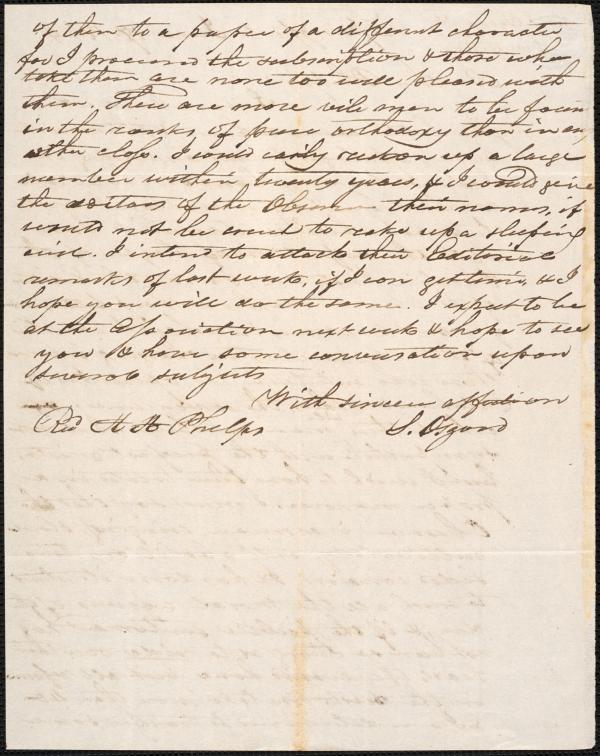 of them to a paper of a different character
for I procured the subscription & those who
take them are none too well pleased with
them. There are more vile men to be found
in the ranks of pure orthodoxy than in any
other class. I could easily reckon up a large
number within twenty years, & I would give
the editors of the Observer their names, if
would not be cruel to rake up a sleeping
I intend to attack their Editorial
remarks of last week, if I can get time, & I
hope you will do the same. I expect to be
at the Association next week & hope to see
you & have some conversation upon
several subjects
With sincere affection
Revd A A Phelps
S. Osgood